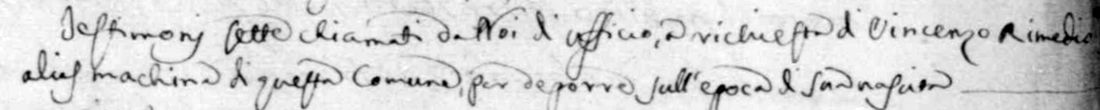 Testimonj sette chiamati da Noi di ufficio, a richiesta di Vincenzo Rimedio
alias machina di questa Comune, per deporre sull'epoca di sua nascita